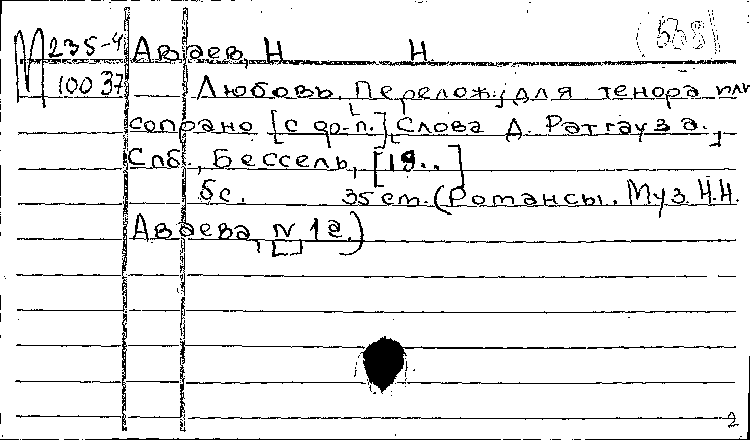 М 235-4 Аваев, Н Н (538)
10037 Любовь. [Перелож.] для тенора или
сопрано [с ф-п.] [Слова Д. Ратгауза.]
Спб., Бессель, [19..]
5с. 35 cm. (Романсы. Муз. Н.Н.
Аваева, [N] 1а.)
2